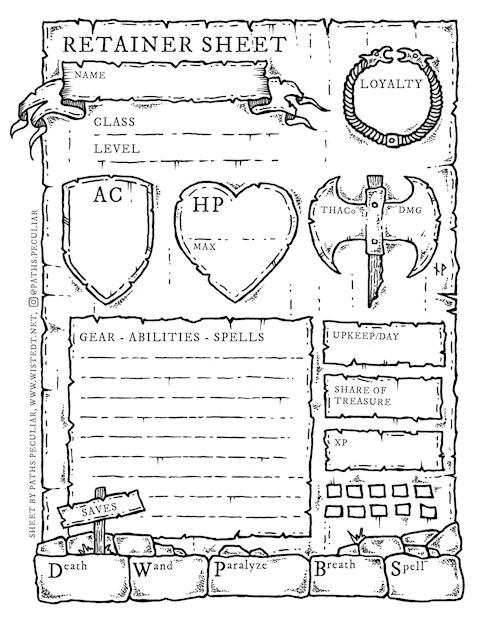 RETAINER SHEET
NAME
LOYALTY
CLASS
LEVEL
AC
HP
MAX
THAC0
DMG
GEAR - ABILITIES - SPELLS
UPKEEP/DAY
SHARE OF
TREASURE
XP
SAVES
Death
Wand
Paralyze
Breath
Spell
SHEET BY PATHS PECULIAR, WWW.WISTEDT.NET, @PATHS.PECULIAR